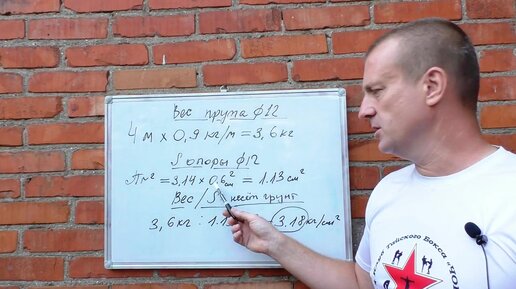 Вес прута ф12
4 м х 0,9 кг/м = 3,6 кг
S опоры ф12
πм² = 3,14 х 0,6² см = 1.13 см²
Вес / S несёт грунт
3,6 кг : 1.1 3.18 кг/см²
Тайского Бокса